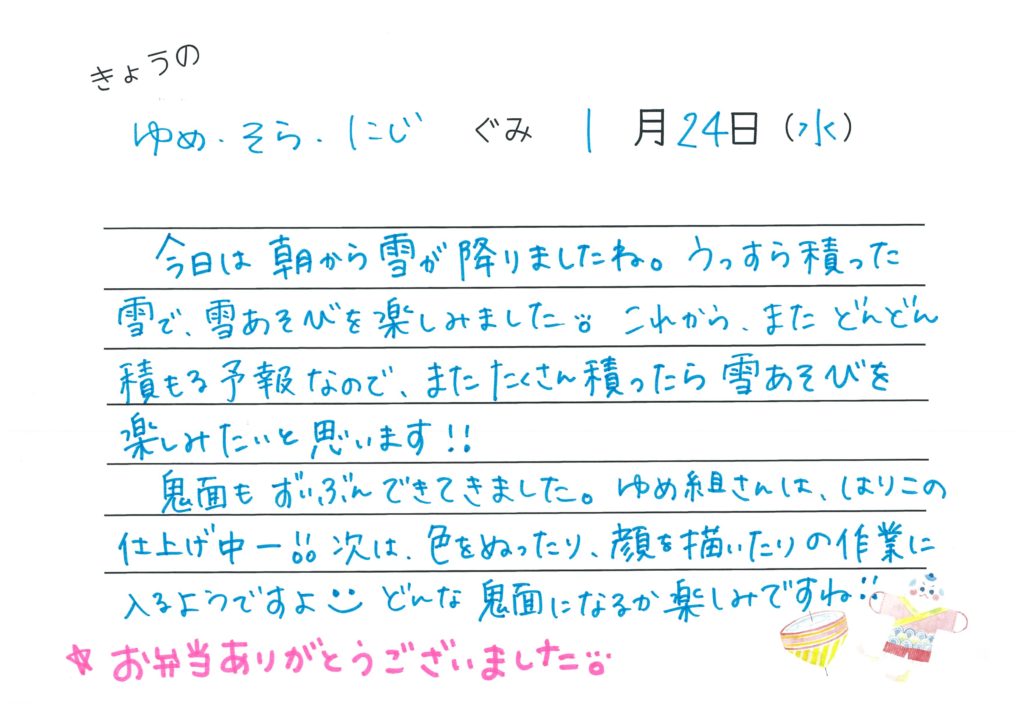 きょうの
ゆめ・そら・にじ ぐみ 1月24日(水)
今日は朝から雪が降りましたね。うっすら積った
雪で、雪あそびを楽しみました。 これから、また どんどん
積もる予報なので、また たくさん積ったら 雪あそびを
楽しみたいと思います!!
鬼面も ずいぶんできてきました。ゆめ組さんは、はりこの
仕上げ中ー!! 次は、色をぬったり、顔を描いたりの作業に
入るようですよ どんな鬼面になるか楽しみですね!!
☆お弁当ありがとうございました。